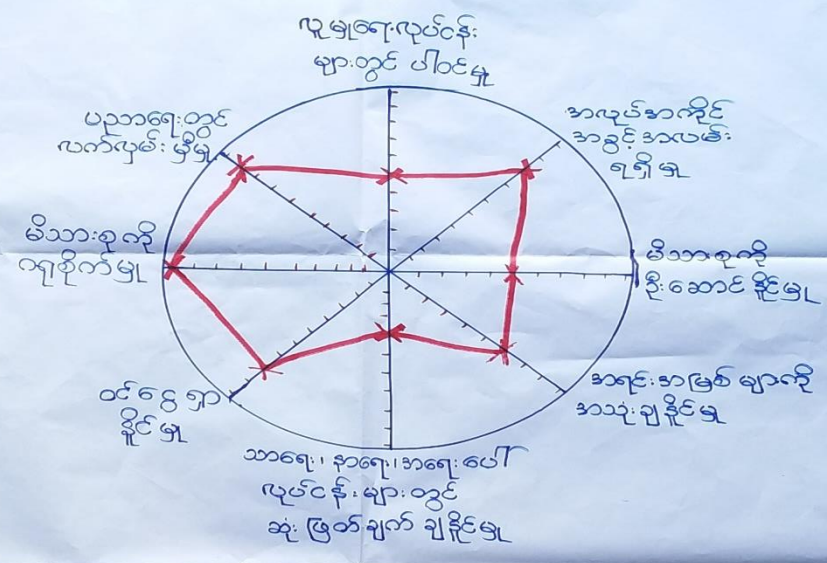 လူမှုရေးလုပ်ငန်း
များတွင် ပါဝင်မှု
အလုပ်အကိုင်
အခွင့်အလမ်း
ရရှိမှု
မိသားစုကို
ဦးဆောင်နိုင်မှု
အရင်းအမြစ်များကို
အသုံးချနိုင်မှု
သာရေး၊ နာရေး၊အရေးပေါ်
လုပ်ငန်းများတွင်
ဆုံးဖြတ်ချက် ချနိုင်မှု
ဝင်ငွေရှာ
နိုင်မှု
မိသားစုကို
ဂရုစိုက်မှု
ပညာရေးတွင်
လက်လှမ်းမှီမှု